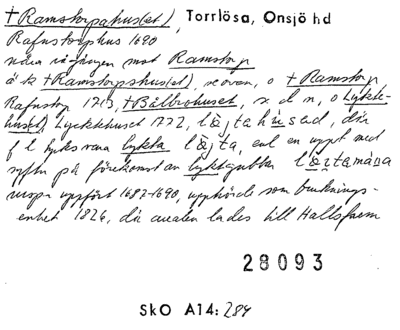 †Ramstorpahus(et), Torrlösa, Onsjö hd
Rafnstorphus 1690
nära vägen mot Ramstorp
ä k †Ramstorpshus(et), se ovan, o †Ramstorp
Rafnstorp 1713, †Bälbrohuset, s. d n, o Lykte-
huset, Lycktehuset 1772, där
f l lyksvana lykta, enl en uppt med
syftn på förekomst av lyktgubba
uppfört 1682-1690, upphörde som bruknings-
enhet 1826, då arealen lades till Hallsfarm
28093
SkO A14: 284